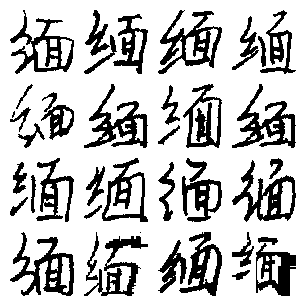 缅缅缅缅
缅缅缅缅
缅缅缅缅
缅缅缅缅